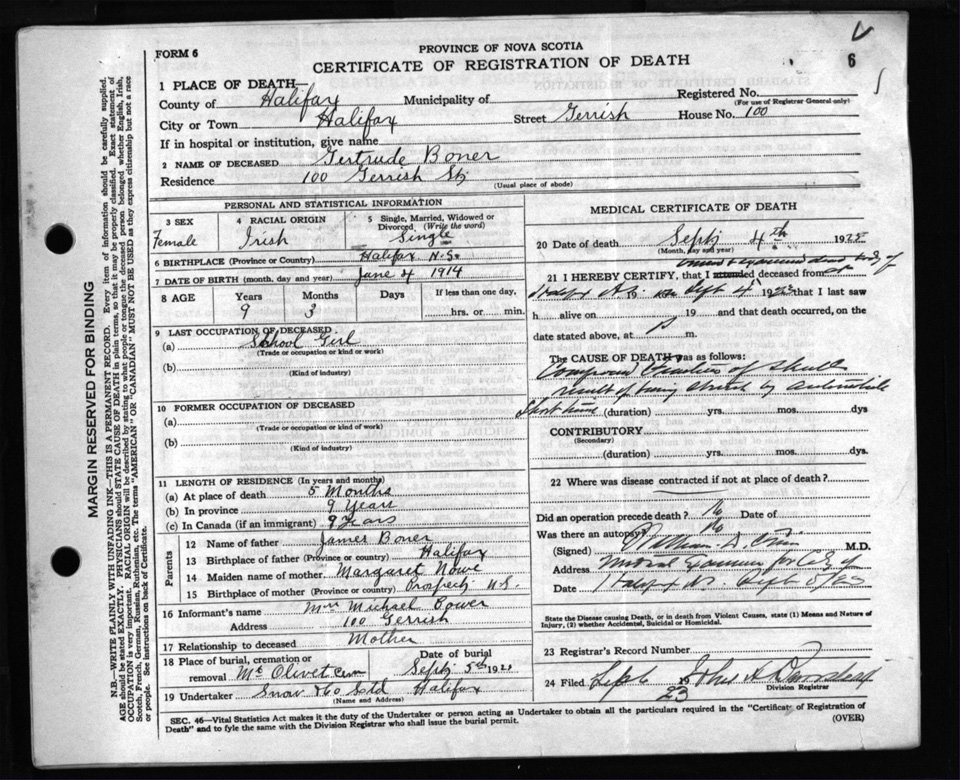 6
FORM 6
PROVINCE OF NOVA SCOTIA
CERTIFICATE OF REGISTRATION OF DEATH
MARGIN RESERVED FOR BINDING
N.B.—WRITE PLAINLY WITH UNFADING INK—THIS IS A PERMANENT RECORD. Every item of information should be carefully supplied.
AGE should be stated EXACTLY. PHYSICIANS should STATE CAUSE OF DEATH in plain terms, so that it may be properly classified. Exact statement of
OCCUPATION is very important. RACIAL ORIGIN will be described by stating to what people or tongue the deceased person belonged whether English, Irish,
Scotch, French, German, Russian, Ruthenian, etc. The terms "AMERICAN" or "CANADIAN" MUST NOT BE USED as they express citizenship but not a race
or people. See instructions on back of Certificate.
1 PLACE OF DEATH
County of Halifax Municipality of Registered No.
(For use of Registrar General only)
City or Town Halifax Street Gerrish House No. 100
If in hospital or institution, give name
2 NAME OF DECEASED Gertrude Boner
Residence 100 Gerrish St.
(Usual place of abode)
PERSONAL AND STATISTICAL INFORMATION
3 SEX Female
4 RACIAL ORIGIN Irish
5 Single, Married, Widowed or Divorced (Write the word) Single
6 BIRTHPLACE (Province or Country) Halifax N.S.
7 DATE OF BIRTH (month, day and year) June 4 1914
8 AGE Years Months Days If less than one day,
9 3 hrs. or min.
9 LAST OCCUPATION OF DECEASED
(a) School Girl
(Trade or occupation or kind or work)
(b)
(Kind of industry)
10 FORMER OCCUPATION OF DECEASED
(a)
(Trade or occupation or kind of work)
(b)
(Kind of industry)
11 LENGTH OF RESIDENCE (In years and months)
(a) At place of death 5 Months
(b) In province 9 Years
(c) In Canada (if an immigrant) 9 Years
Parents
12 Name of father James Boner
13 Birthplace of father (Province or country) Halifax
14 Maiden name of mother Margaret Nowe
15 Birthplace of mother (Province or country) Prospect N.S.
16 Informant's name Mrs Michael Bower
Address 100 Gerrish
17 Relationship to deceased Mother
18 Place of burial, cremation or removal Mt Olivet Cem
Date of burial Sept 5th 192
19 Undertaker Snow & Co Ltd Halifax
(Name and Address)
MEDICAL CERTIFICATE OF DEATH
20 Date of death Sept 4th 192
(Month, day and year)
21 I HEREBY CERTIFY, that I attended deceased from
Halifax N.S. 19 Sept 4 1923 that I last saw
h alive on 19 and that death occurred, on the
date stated above, at m.
The CAUSE OF DEATH was as follows:
Compound fracture of skull
result of being struck by automobile
Short time (duration) yrs. mos. dys
CONTRIBUTORY
(Secondary)
(duration) yrs. mos. dys.
22 Where was disease contracted if not at place of death?
Did an operation precede death? No Date of
Was there an autopsy? No
(Signed) M.D.
Address
Date Halifax
State the Disease causing Death, or in death from Violent Causes, state (1) Means and Nature of
Injury, (2) whether Accidental, Suicidal or Homicidal.
23 Registrar's Record Number
24 Filed Sep 6 19 23
Division Registrar
SEC. 46—Vital Statistics Act makes it the duty of the Undertaker or person acting as Undertaker to obtain all the particulars required in the "Certificate of Registration of
Death" and to fyle the same with the Division Registrar who shall issue the burial permit.
(OVER)